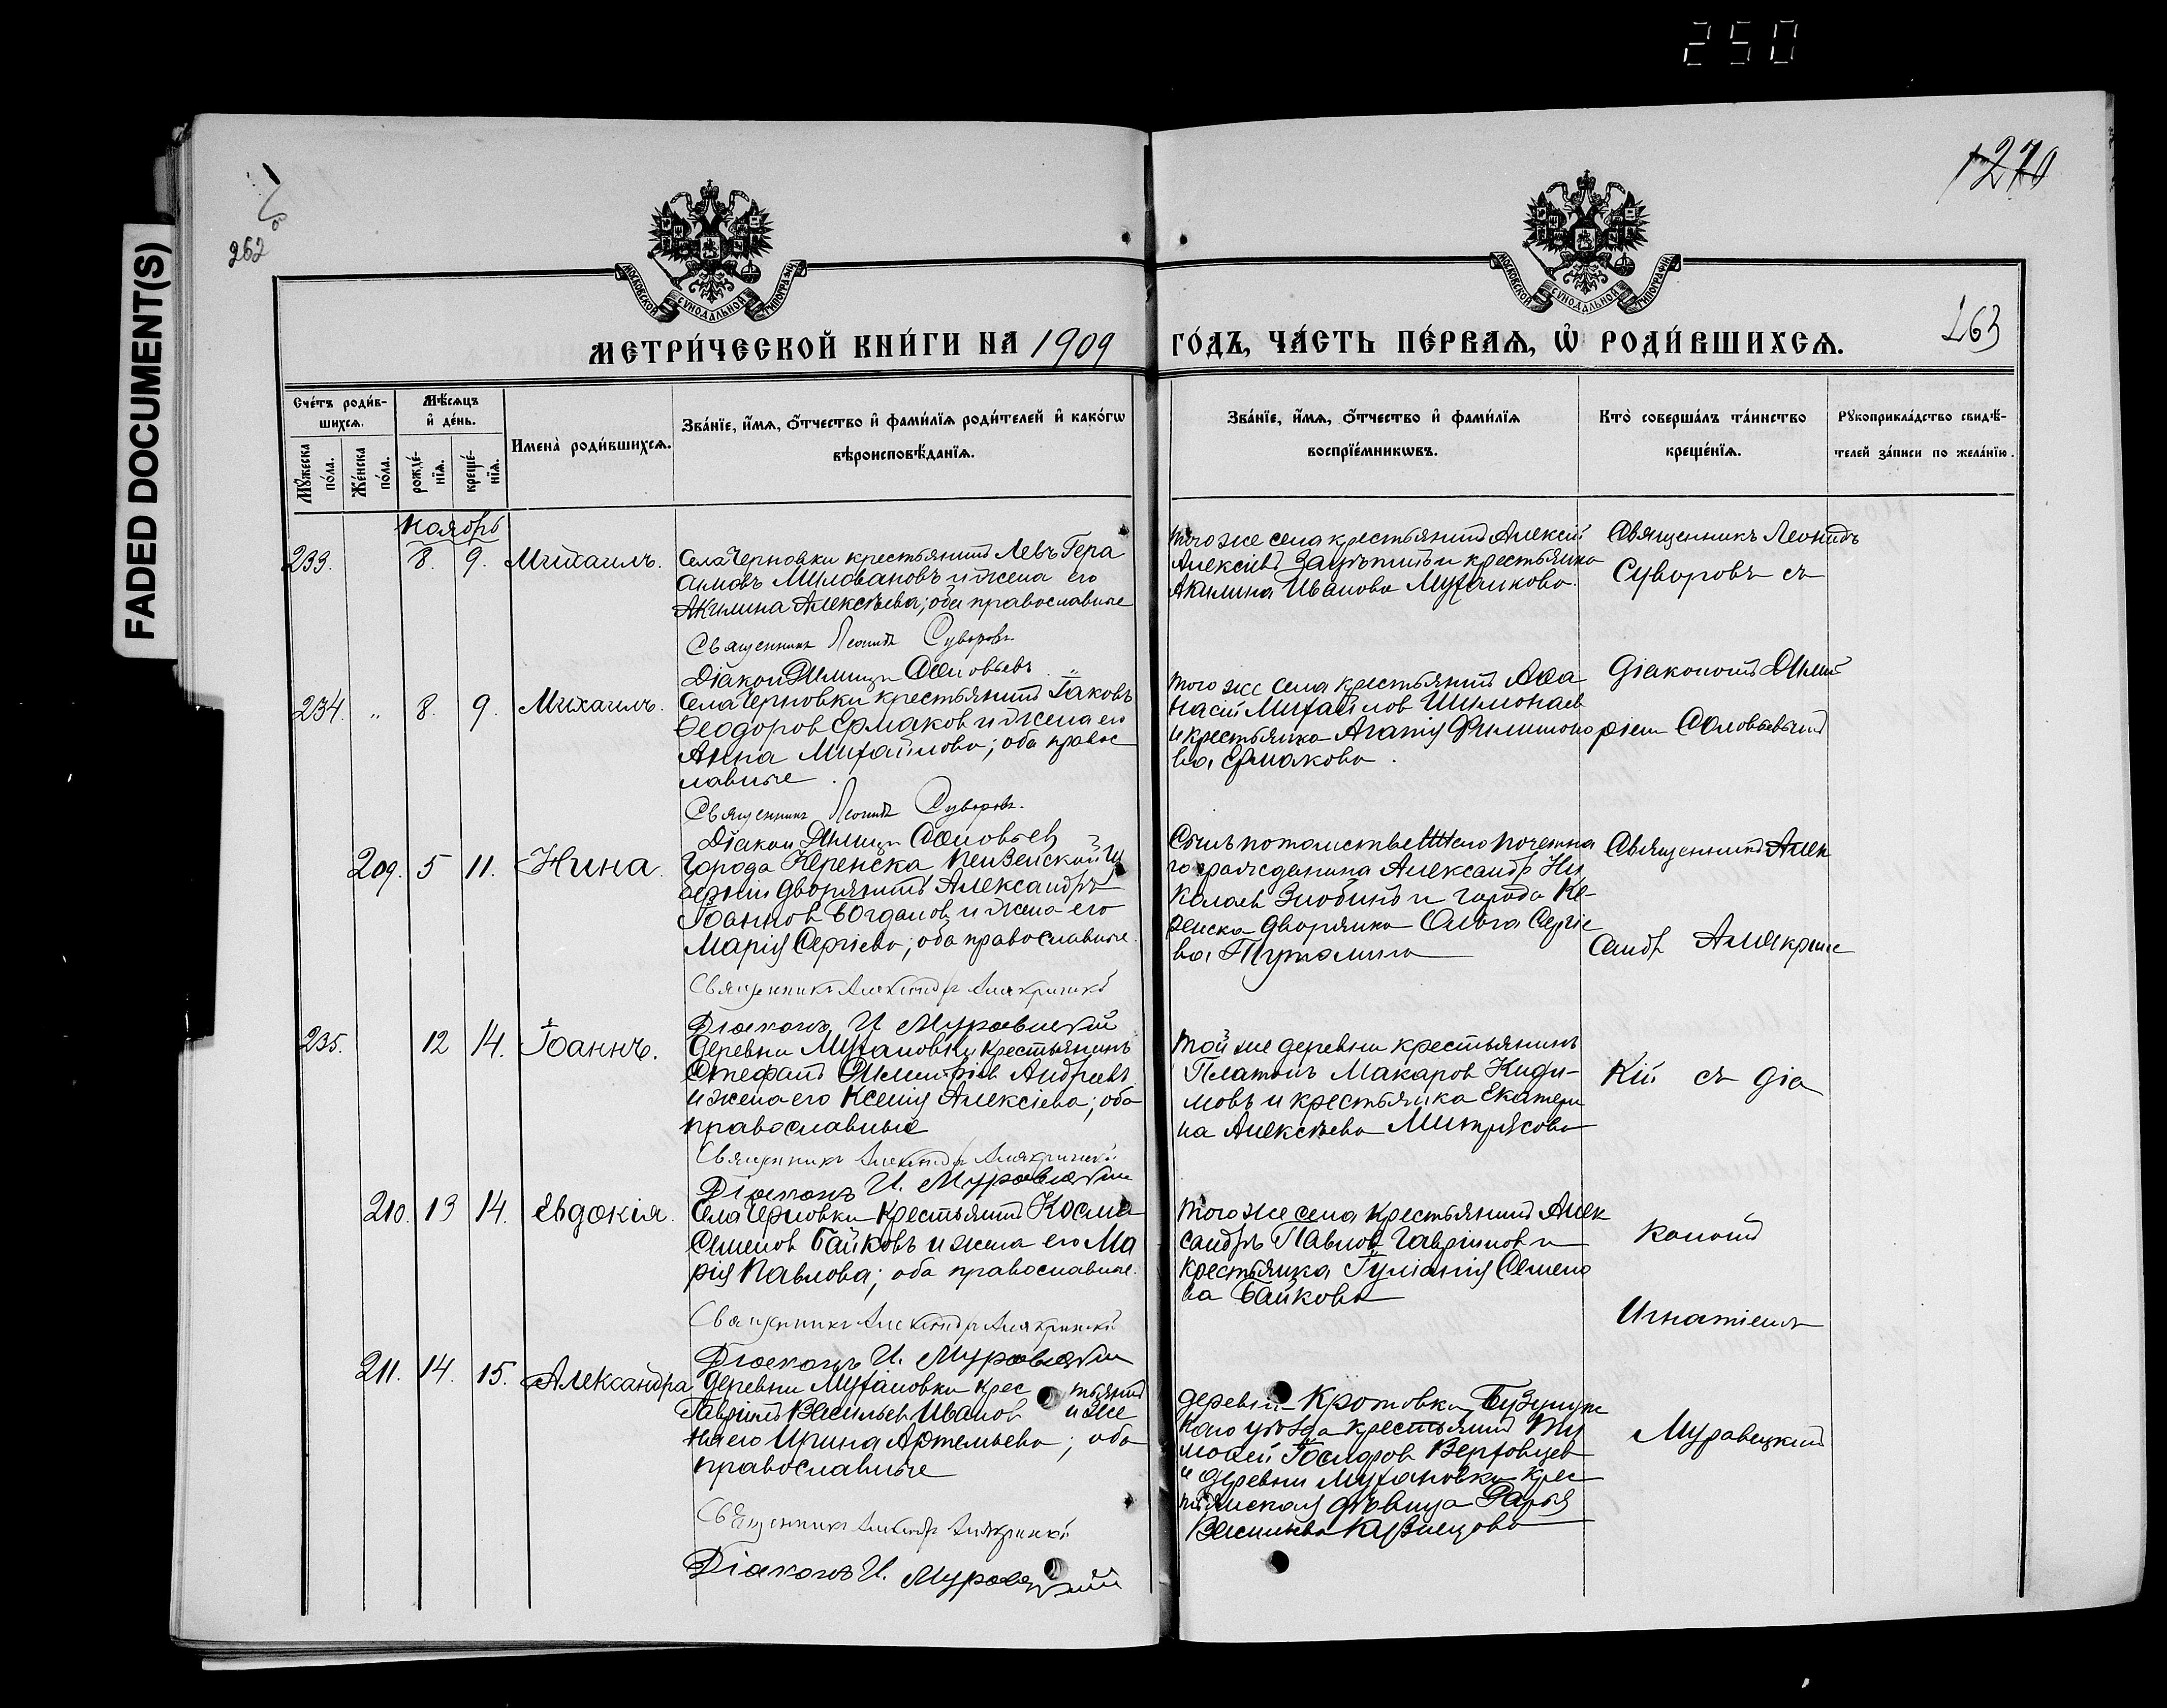 250
FADED DOCUMENT(S)
262
1270
263
МОСКОВСКОЙ СѴНОДАЛЬНОЙ ТИПОГРАФІИ
МОСКОВСКОЙ СѴНОДАЛЬНОЙ ТИПОГРАФІИ
МЕТРИ́ЧЕСКОЙ КНИ́ГИ НА 1909 ГО́ДЪ, ЧА́СТЬ ПЕ́РВАѦ, Ѡ҆ РОДИ́ВШИХСѦ.
Сче́тъ роди́в-
шихсѧ.
Мꙋ́жеска по́ла.
Же́нска по́ла.
Мѣ́сѧцъ
и҆ де́нь.
рожде́-
нїѧ.
креще́-
нїѧ.
Имена̀ роди́вшихсѧ.
Зва́нїе, и҆́мѧ, ѻ҆́тчество и҆ фами́лїѧ роди́телей и҆ како́гѡ
вѣроисповѣ́данїѧ.
Зва́нїе, и҆́мѧ, ѻ҆́тчество и҆ фами́лїѧ
воспрїе́мникѡвъ.
Кто̀ соверша́лъ та́инство
креще́нїѧ.
Рꙋкоприкла́дство свидѣ́-
телей за́писи по жела́нїю.
Ноябрь
233. 8. 9. Михаилъ.
Села Черновки крестьянинъ Левъ Гера
симовъ Миловановъ и жена его
Акилина Алексѣева; оба православные
Священникъ Леонидъ Суворовъ
Діакон Димитрій Соловьевъ
того же села крестьянинъ Алексій
Алексіевъ и крестьянка
Акилина Иванова Муханкова.
Священникъ Леонидъ
Суворовъ съ
234. " 8. 9. Михаилъ.
Села Черновки крестьянинъ Іаковъ
Ѳеодоров Ермаков и жена его
Анна Михайлова; оба правос
лавные.
Священникъ Леонидъ Суворовъ.
Діакон Димитрій Соловьев
того же села крестьянинъ Аѳа
насій Михайлов Шимонаев
и крестьянка Агаѳія Филимоно
ва Ермакова.
Діакономъ Димит
ріем Соловьевымъ
209. 5 11. Нина.
Города Керенска Пензенской гу
берніи дворянинъ Александръ
Іоаннов Богданов и жена его
Марія Сергіева; оба православные.
Священникъ Александръ Алякринскій
Діаконъ И. Муравецкій
Сынъ потомственного почетна
го гражданина Александр Ни
колаев Злобинъ и города Ке-
ренска дворянка Ольга Сергіе
ва
Священникъ Алек
сандръ Алякринс
235. 12 14. Іоаннъ.
Деревни Мухановки крестьянинъ
Стефанъ Димитріев Андреевъ
и жена его Ксенія Алексіева; оба
православные
Священникъ Александръ Алякринскій
Діаконъ И. Муравецкій
той же деревни крестьянинъ
Платонъ Макаров Киди-
мовъ и крестьянка Екатери
на Алексѣева Митрясова
кій съ діа
210. 13 14. Евдокія.
Села Черновки крестьянинъ Косма
Семенов Байковъ и жена его Ма
рія Павлова; оба православные.
Священникъ Александръ Алякринскій
Діаконъ И. Муравецкій
того же села крестьянинъ Алек
сандръ Павлов Гаврилов и
крестьянка Іуліанія Семено
ва Байкова
кономъ
Игнатіемъ
211. 14. 15. Александра
Деревни Мухановки крес тьянинъ
Гавріилъ Васильев Иванов и же
на его Ирина Артемьева; оба
православные
Священникъ Александръ Алякринскій
Діаконъ И. Муравецкій
деревни Кротовки Бузулукс
каго уѣзда крестьянинъ Ти
моѳей Верховцев
и деревни Мухановки крес
тьянская дѣвица Дарья
Васильева Кузнецова
Муравецкимъ